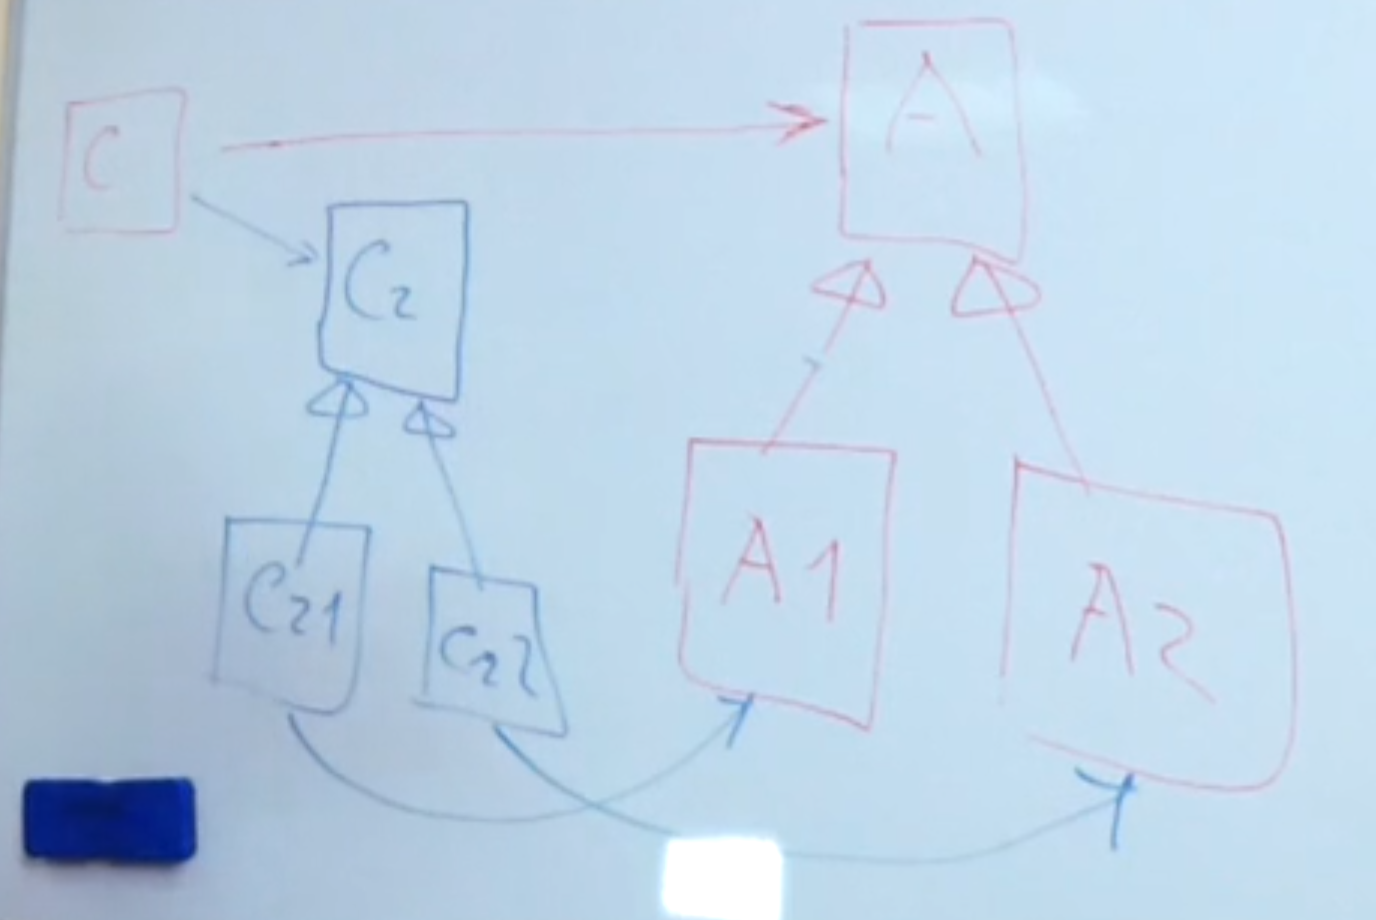 C
A
C2
C21
C22
A1
A2